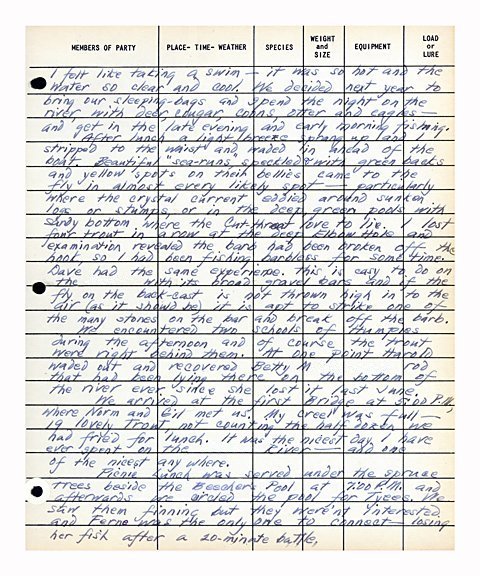 MEMBERS OF PARTY PLACE- TIME- WEATHER SPECIES WEIGHT and SIZE EQUIPMENT LOAD or LURE
I felt like taking a swim — it was so hot and the
water so clear and cool. We decided next year to
bring our sleeping-bags and spend the night on the
river with deer, cougar, coons, otter and eagles —
and get in the late evening and early morning fishing.
After lunch a light breeze sprang up and I
stripped to the waist and waded in ahead of the
boat. Beautiful "sea-runs" speckled with green backs
and yellow spots on their bellies came to the
fly in almost every likely spot — particularly
where the crystal current eddied around sunken
logs or stumps, or in the deep green pools with
sandy bottom where the Cut-throat love to lie. I lost
four trout in a row at the deep Elbow Hole and
examination revealed the barb had been broken off the
hook, so I had been fishing barbless for some time.
Dave had the same experience. This is easy to do on
the with its broad gravel bars and if the
fly on the back-cast is not thrown high in to the
air (as it should be) it is apt to strike one of
the many stones on the bar and break off the barb.
We encountered two schools of Humpies
during the afternoon and of course the trout
were right behind them. At one point Harold
waded out and recovered Betty M rod
that had been lying there on the bottom of
the river ever since she lost it last June.
We arrived at the first Bridge at 5:00 P.M.,
where Norm and Gil met us. My creel was full —
19 lovely Trout, not counting the half dozen we
had fried for lunch. It was the nicest day I have
ever spent on the River — and one
of the nicest any where.
Picnic Lunch was served under the spruce
trees beside the Beecher's Pool at 7:00 P.M. and
afterwards we circled the pool for Tyees. We
saw them finning but they weren't interested
and Ferne was the only one to connect — losing
her fish after a 20-minute battle.